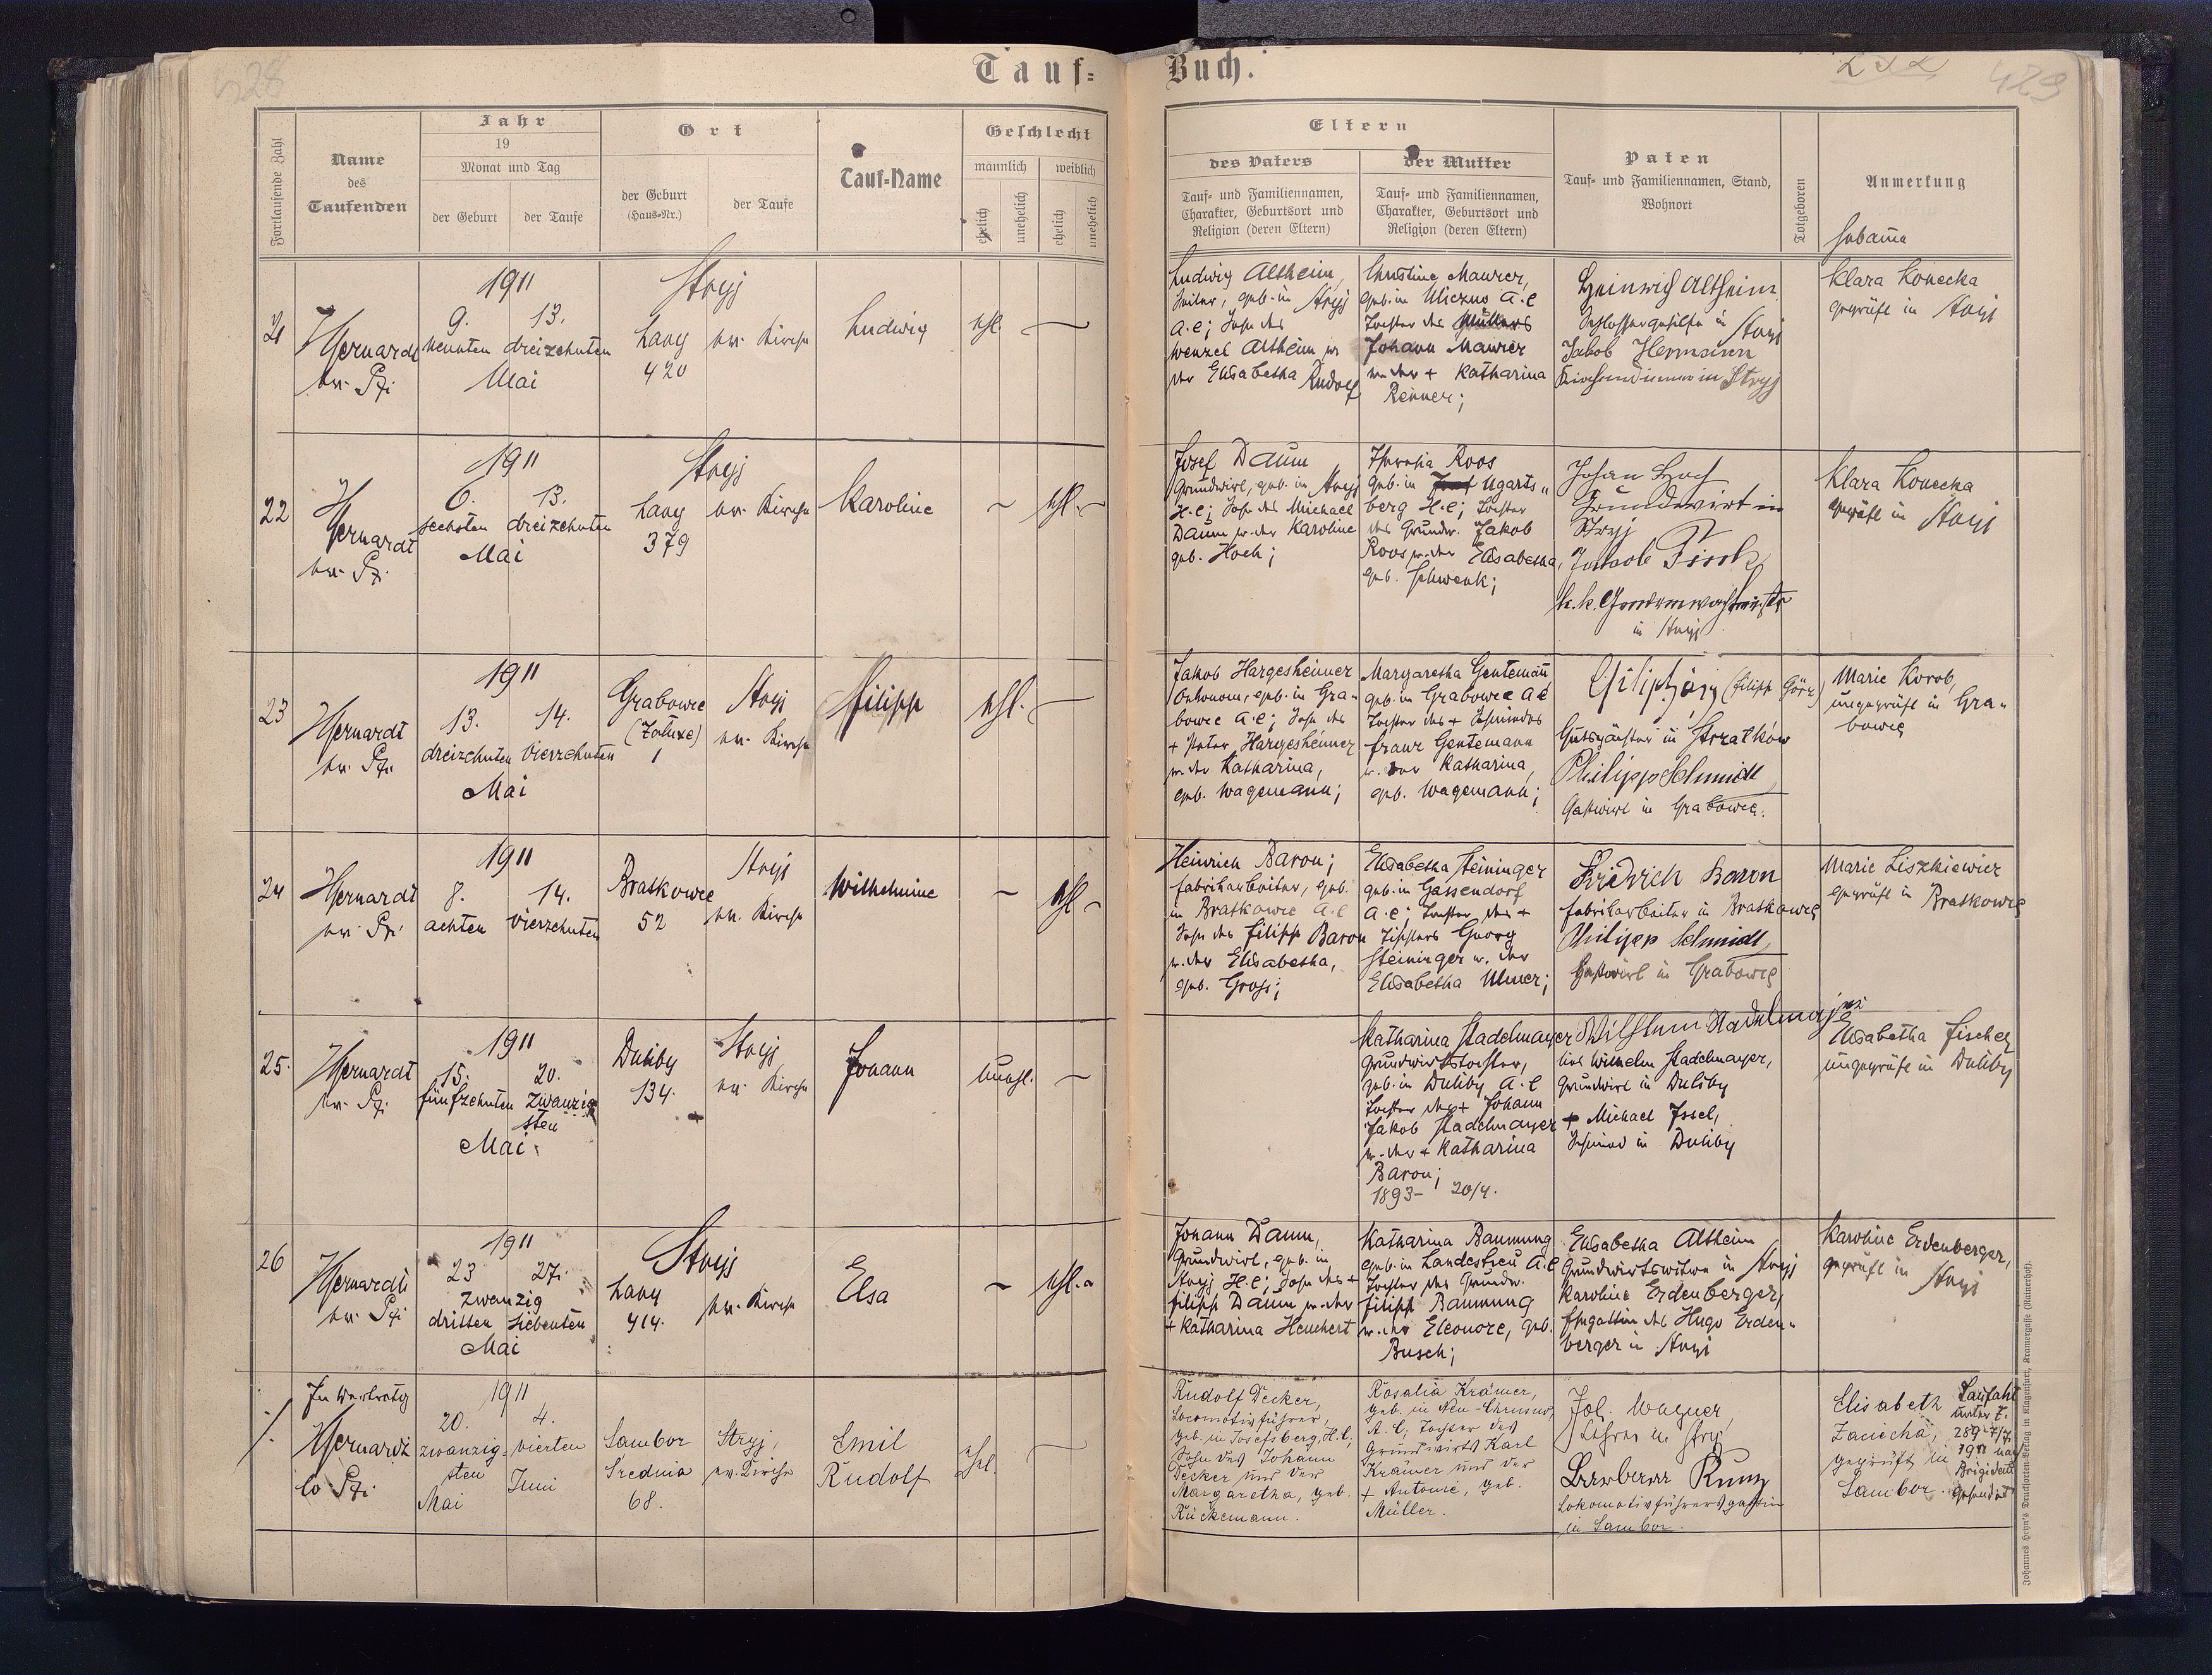 Tauf-Buch.
428
429
Fortlaufende Zahl
Name
des
Taufenden
Jahr
19
Monat und Tag
der Geburt
der Taufe
Ort
der Geburt
(Haus-Nr.)
der Taufe
Tauf-Name
Geschlecht
männlich
weiblich
ehelich
unehelich
ehelich
unehelich
Eltern
des Vaters
Tauf- und Familiennamen,
Charakter, Geburtsort und
Religion (deren Eltern)
der Mutter
Tauf- und Familiennamen,
Charakter, Geburtsort und
Religion (deren Eltern)
Paten
Tauf- und Familiennamen, Stand,
Wohnort
Totgeboren
Anmerkung
21
1911
9. 13.
neunten dreizehnten
Mai
Stryj
Lany
420
ev. Kirche
Ludwig
ehl. —
Ludwig Altheim,
geb. in Stryj
A.C; Sohn des
Wenzel Altheim
der Elisabetha Rudolf
Christine Maurer,
geb. in Uliczno A.C
Tochter des
Johann Maurer
u. der + Katharina
Renner;
Heinrich Altheim
Schlossergehilfe in Stryj
Jakob Hermann
Kirchendiener in Stryj
Klara Konecka
geprüft in Stryj
22
1911
6. 13.
sechsten dreizehnten
Mai
Stryj
Lany
379
ev. Kirche
Karoline
— ehl. —
Josef Daum
Grundwirt, geb. in Stryj
H.C; Sohn des Michael
Daum u. der Karoline
geb. Hoch;
Theresia Roos
geb. in Ugarts-
berg H.C; Tochter
des Grundw. Jakob
Roos u. der Elisabetha,
geb. Schwenk;
Johan Hoch
Grundwirt in
Stryj
in Stryj
Klara Konecka
geprüft in Stryj
23
1911
13. 14.
dreizehnten vierzehnten
Mai
Grabowce
1
Stryj
ev. Kirche
Filipp
ehl. —
Jakob Hargesheimer
Oekonom, geb. in Gra-
bowce A.C; Sohn des
+ Peter Hargesheimer
u. der Katharina,
geb. Wagemann;
Margaretha Gentemann
geb. in Grabowce A.C
Tochter des + Schmiedes
Franz Gentemann
u. der Katharina,
geb. Wagemann;
(Filipp Görz)
Gutspächter in Strzałków
Philipp Schmidt
Gastwirt in Grabowce.
Marie Korob,
ungeprüft in Gra-
bowce
24
1911
8. 14.
achten vierzehnten
Bratkowce
52
Stryj
ev. Kirche
Wilhelmine
— ehl —
Heinrich Baron;
Fabrikarbeiter, geb.
in Bratkowce A.C
Sohn des Filipp Baron
u. der Elisabetha,
geb. Gross;
Elisabetha Steininger
geb. in Gassendorf
A.C; Tochter des +
Tischlers Georg
Steininger u. der
Elisabetha Ulmer;
Fridrich Baron
Fabrikarbeiter in Bratkowce
Philipp Schmidt,
Gastwirt in Grabowce
Marie Liszkiewicz
geprüft in Bratkowce
25.
1911
15. 20.
fünfzehnten zwanzig
sten
Mai
Duliby
134.
Stryj
ev. Kirche
Johann
unehl. —
Katharina Stadelmayer
Grundwirtstochter,
geb. in Duliby A.C
Tochter des + Johann
Jakob Stadelmayer
u. der + Katharina
Baron;
1893 - 20/4.
Wilhelm Stadelmayer
Wilhelm Stadelmayer,
Grundwirt in Duliby
+ Michael Issel,
Schmied in Duliby
Elisabetha Fischer
ungeprüft in Duliby
26
1911
23 27.
zwanzig
dritten siebenten
Mai
Stryj
Lany
414.
ev. Kirche
Elsa
— ehl.
Johann Daum,
Grundwirt, geb. in
Stryj H.C; Sohn des +
Filipp Daum u. der
+ Katharina Heuchert
Katharina Baumung
geb. in Landestreu A.C
Tochter des Grundw.
Filipp Baumung
u. der Eleonore, geb.
Busch;
Elisabetha Altheim
Grundwirtswitwe in Stryj
Karoline Erdenberger,
Ehegattin des Hugo Erden-
berger in Stryj
Karoline Erdenberger,
geprüft in Stryj
1911
20. 4.
zwanzig- vierten
sten
Mai Juni
Sambor
Srednia
68.
Stryj,
ev. Kirche
Emil
Rudolf
ehl.
Rudolf Decker,
Locomotivführer,
geb. in Josefsberg, H.C;
Sohn des Johann
Decker und der
Margaretha, geb.
Rückemann.
Rosalia Krämer,
geb. in Neu-Chrusno,
A.C; Tochter des
Grundwirts Karl
Krämer und der
+ Antonie, geb.
Müller.
Joh. Wagner,
Lehrer in Stryj
Barbara Kunz
Lokomotivführersgattin
in Sambor.
Elisabeth
geprüft in
Sambor.
Johannes Heyn's Drucksorten-Verlag in Klagenfurt, Kramergasse (Rainerhof).